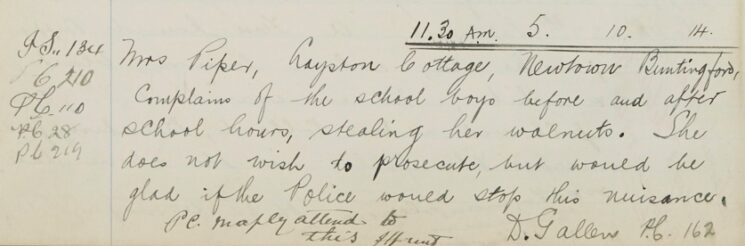 11.30 Am. 5. 10. 14.
P.S. 134
P.C. 210
P.C. 110
P.C. 28
P.C. 219
Mrs Piper, Layston Cottage, Newtown Buntingford,
Complains of the school boys before and after
school hours, stealing her walnuts. She
does not wish to prosecute, but would be
glad if the Police would stop this nuisance.
P.C. attend to
this
D. Gallen P.C. 162